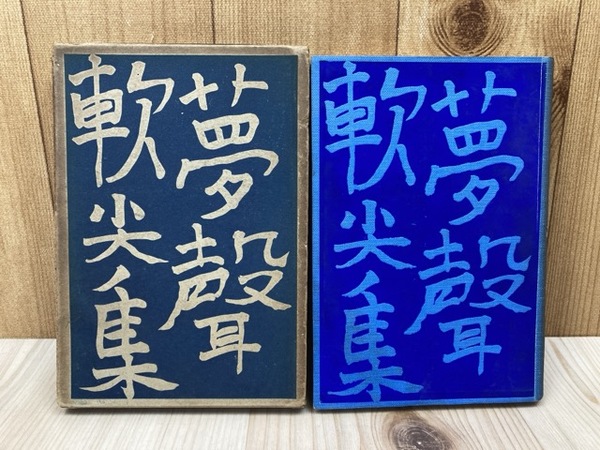 夢聲
軟尖集
夢聲
軟尖集